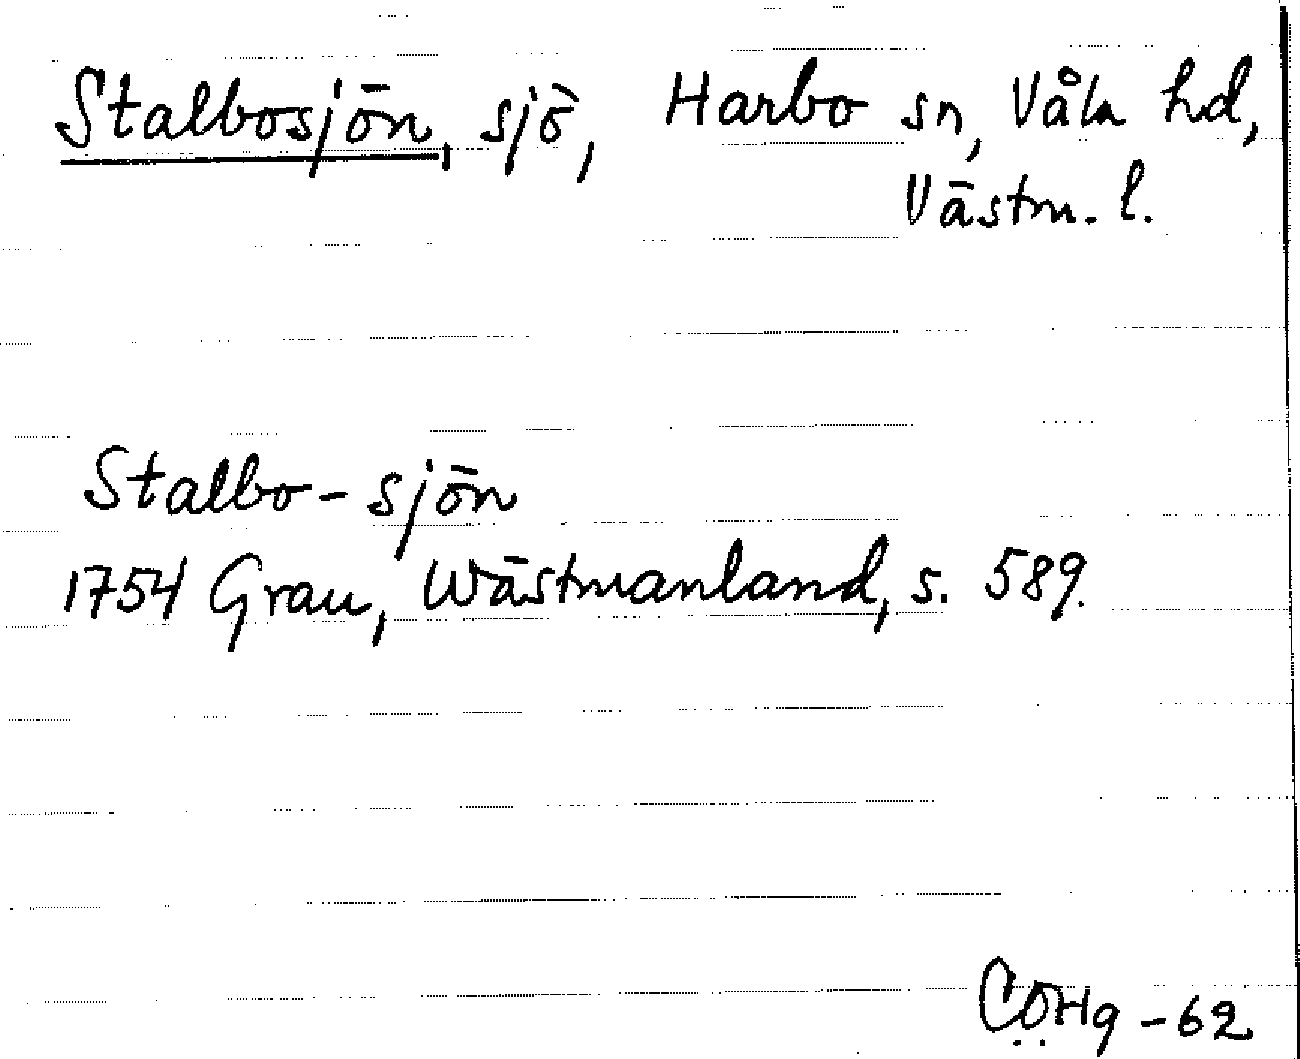 Stalbosjön, sjö, Harbo sn, Våla hd,
Västm. l.
Stalbo-sjön
1754 Grau, Wästmanland, s. 589.
CÖHg -62